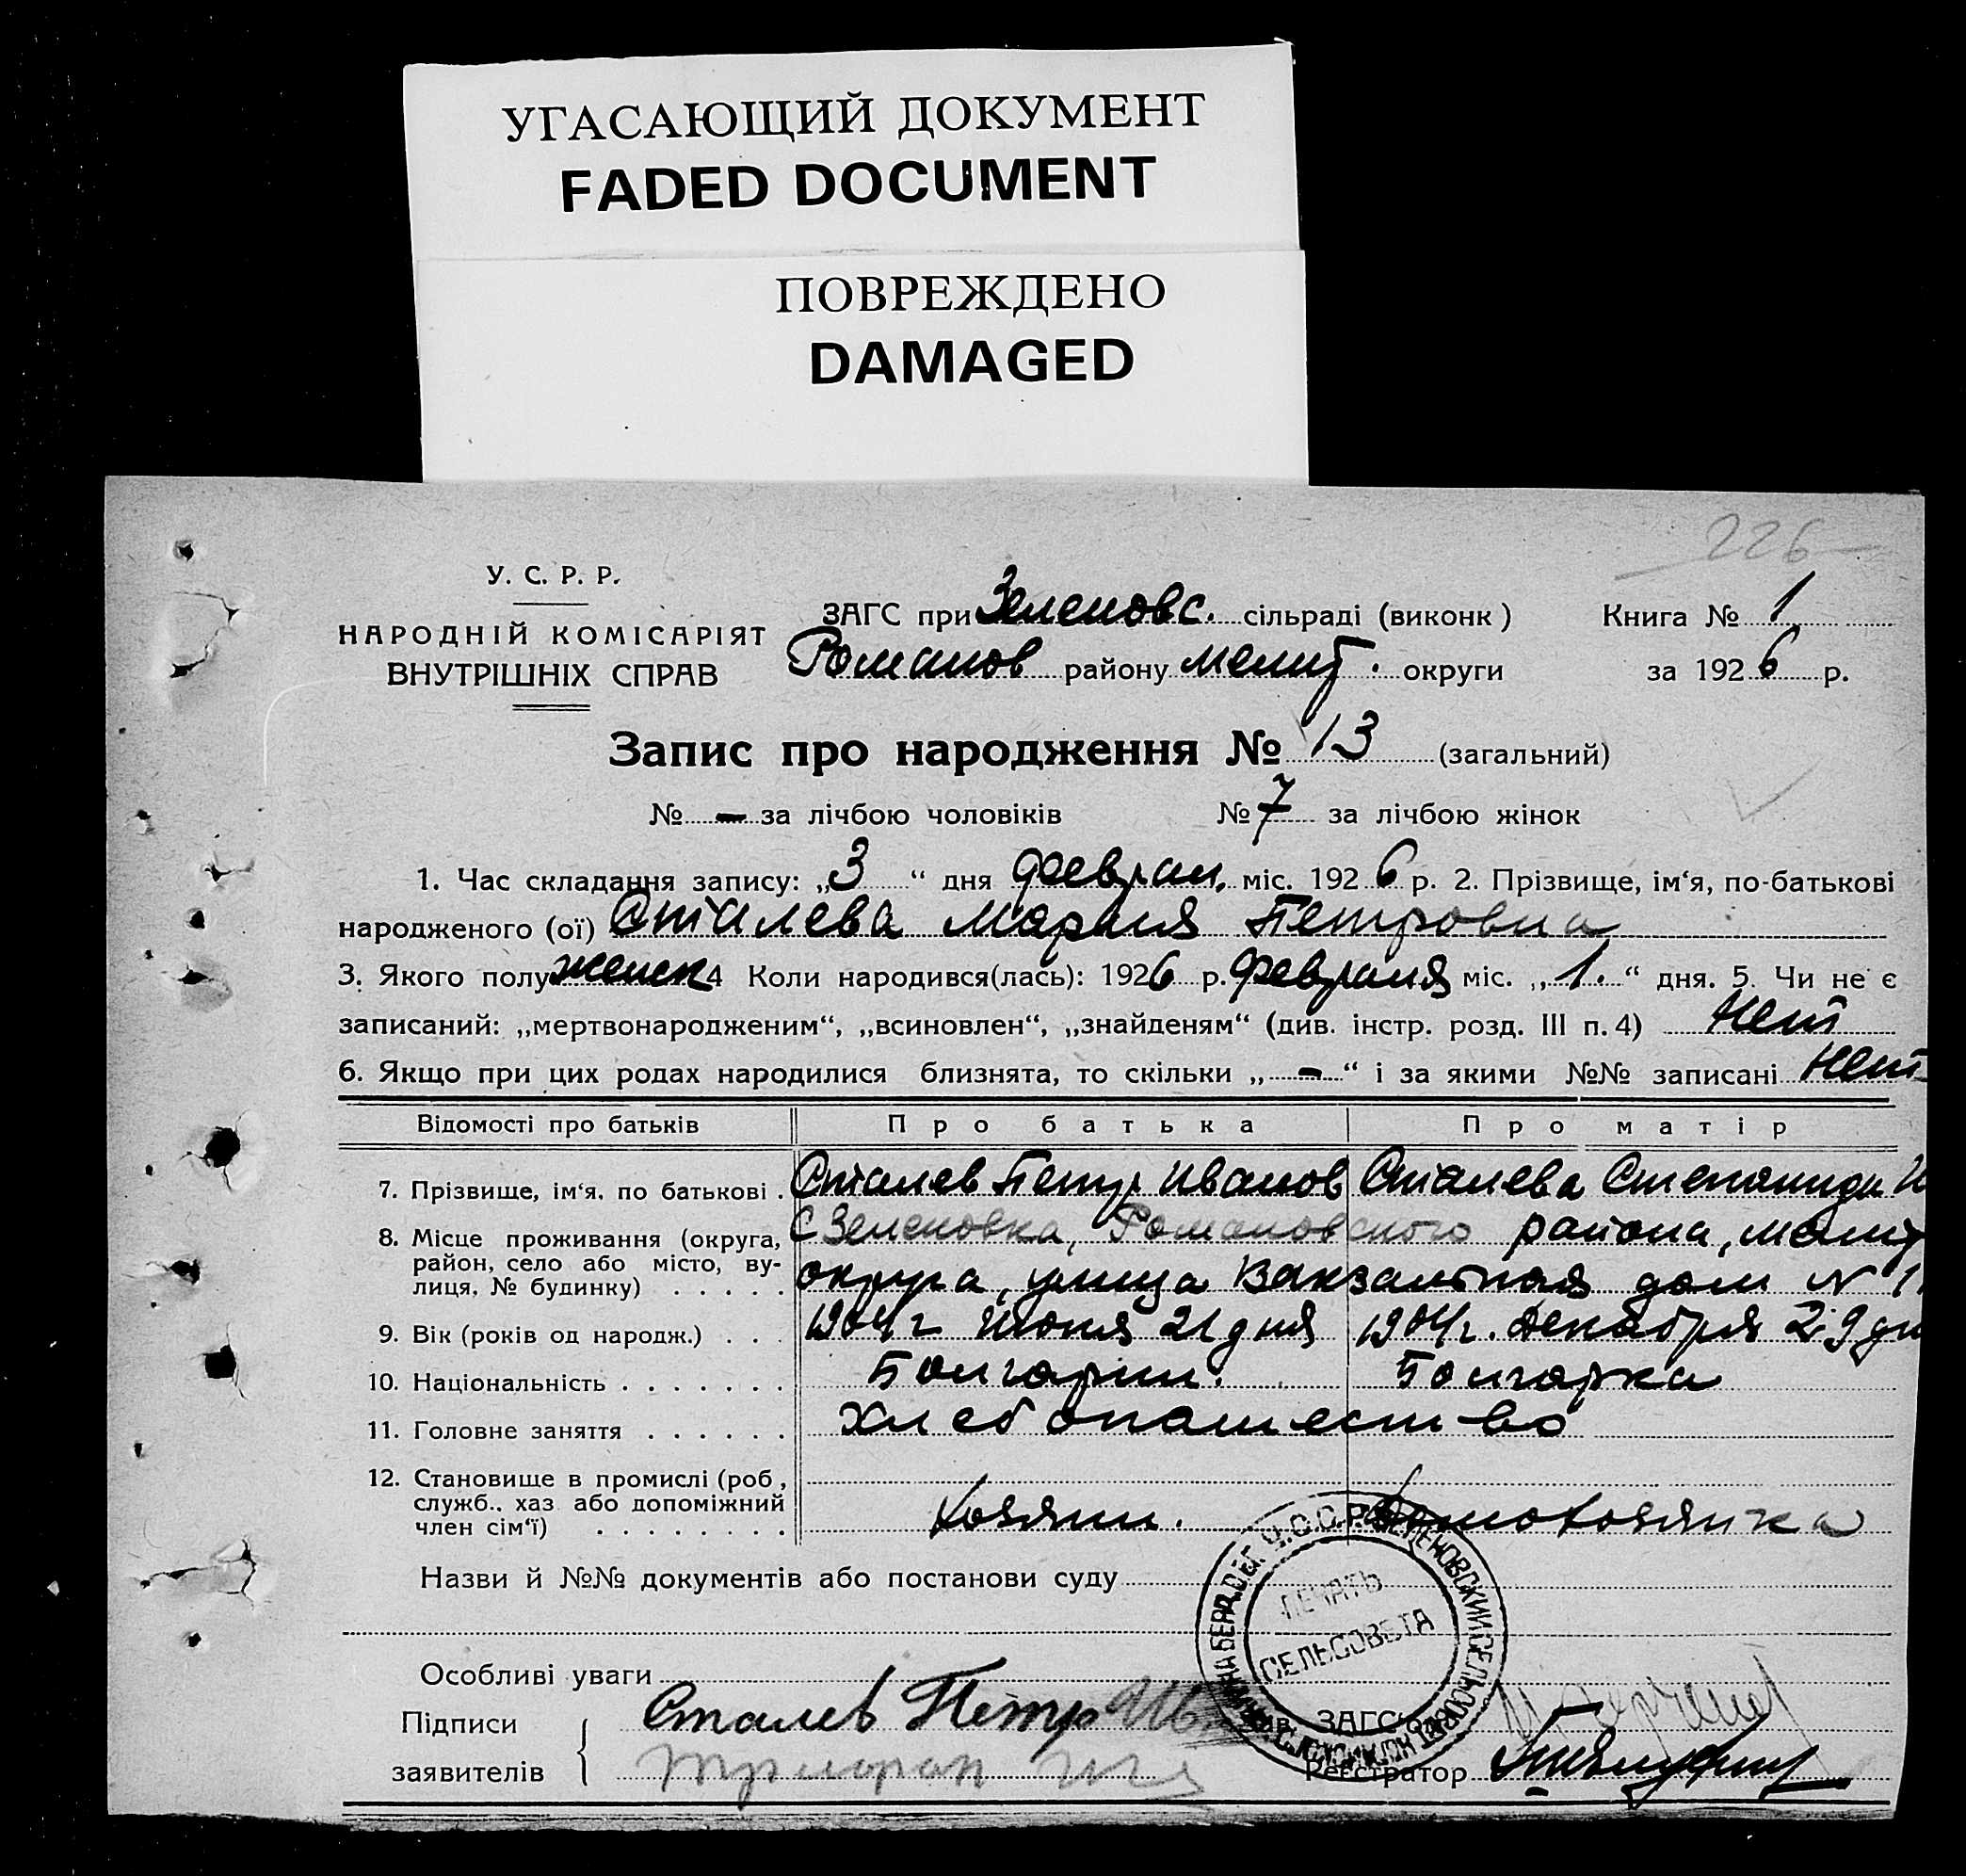 УГАСАЮЩИЙ ДОКУМЕНТ
FADED DOCUMENT
ПОВРЕЖДЕНО
DAMAGED
226
У. С. Р. Р.
НАРОДНІЙ КОМІСАРІЯТ
ВНУТРІШНІХ СПРАВ
ЗАГС при Зеленовс. сільраді (виконк)
Романов району мелит. округи
Книга № 1
за 1926 р.
Запис про народження № 13 (загальний)
№ - за лічбою чоловіків № 7 за лічбою жінок
1. Час складання запису: „3“ дня феврал. міс. 1926 р. 2. Прізвище, ім‘я, по-батькові
народженого (ої) Сталева Мария Петровна
3. Якого полу женск 4 Коли народився(лась): 1926 р. февраля міс. „1.“ дня. 5. Чи не є
записаний: „мертвонародженим“, „всиновлен“, „знайденям“ (див. інстр. розд. III п. 4) Нет
6. Якщо при цих родах народилися близнята, то скільки „-“ і за якими №№ записані Нет
Відомості про батьків Про батька Про матір
7. Прізвище, ім‘я, по батькові . Сталев Петр Иванов Сталева Степанида И
8. Місце проживання (округа, район, село або місто, вулиця, № будинку) . . . . . С Зеленовка, Романовского района, мелит
округа, улица Вакзальная дом N 1
9. Вік (років од народж.) . . . 1904 г Июня 21 дня 1904 г. Декабря 29 дн
10. Національність . . . . . . . Болгарин. Болгарка
11. Головне заняття . . . . . . Хлебопашество
12. Становище в промислі (роб, служб., хаз або допоміжний член сім‘ї) . . . . . . . . Хозяин. Домохозяйка
Назви й №№ документів або постанови суду
У.С.С.Р. ЗЕЛЕНОВСКИЙ СЕЛЬСОВЕТ
ПЕЧАТЬ
СЕЛЬСОВЕТА
Особливі уваги
Підписи
заявителів
Сталев Петр Ив
Зав. ЗАГС‘ом
Реєстратор